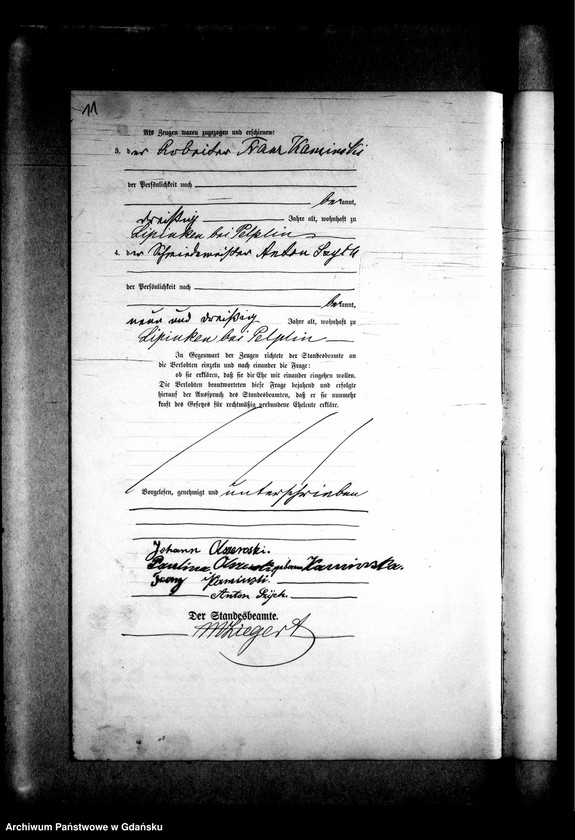 11
Als Zeugen waren zugezogen und erschienen:
3. der Arbeiter Franz Kaminski
der Persönlichkeit nach
bekannt,
dreißig Jahre alt, wohnhaft zu
Lipinken bei Pelplin
4. der Schmiedemeister Anton
der Persönlichkeit nach
bekannt,
neun und dreißig Jahre alt, wohnhaft zu
Lipinken bei Pelplin
In Gegenwart der Zeugen richtete der Standesbeamte an
die Verlobten einzeln und nach einander die Frage:
ob sie erklären, daß sie die Ehe mit einander eingehen wollen.
Die Verlobten beantworteten diese Frage bejahend und erfolgte
hierauf der Ausspruch des Standesbeamten, daß er sie nunmehr
kraft des Gesetzes für rechtmäßig verbundene Eheleute erkläre.
Vorgelesen, genehmigt und unterschrieben
Johann Olszewski.
Paulina Olszewski geborene Kaminska.
Franz Kaminski.
Anton
Der Standesbeamte.
Archiwum Państwowe w Gdańsku